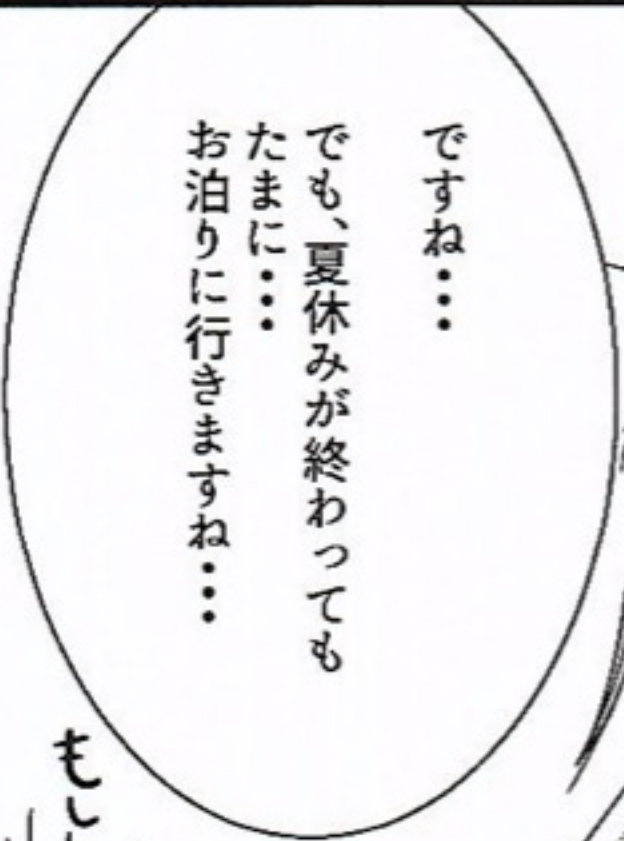 ですね・・・
でも、夏休みが終わっても
たまに・・・
お泊りに行きますね・・・
もし